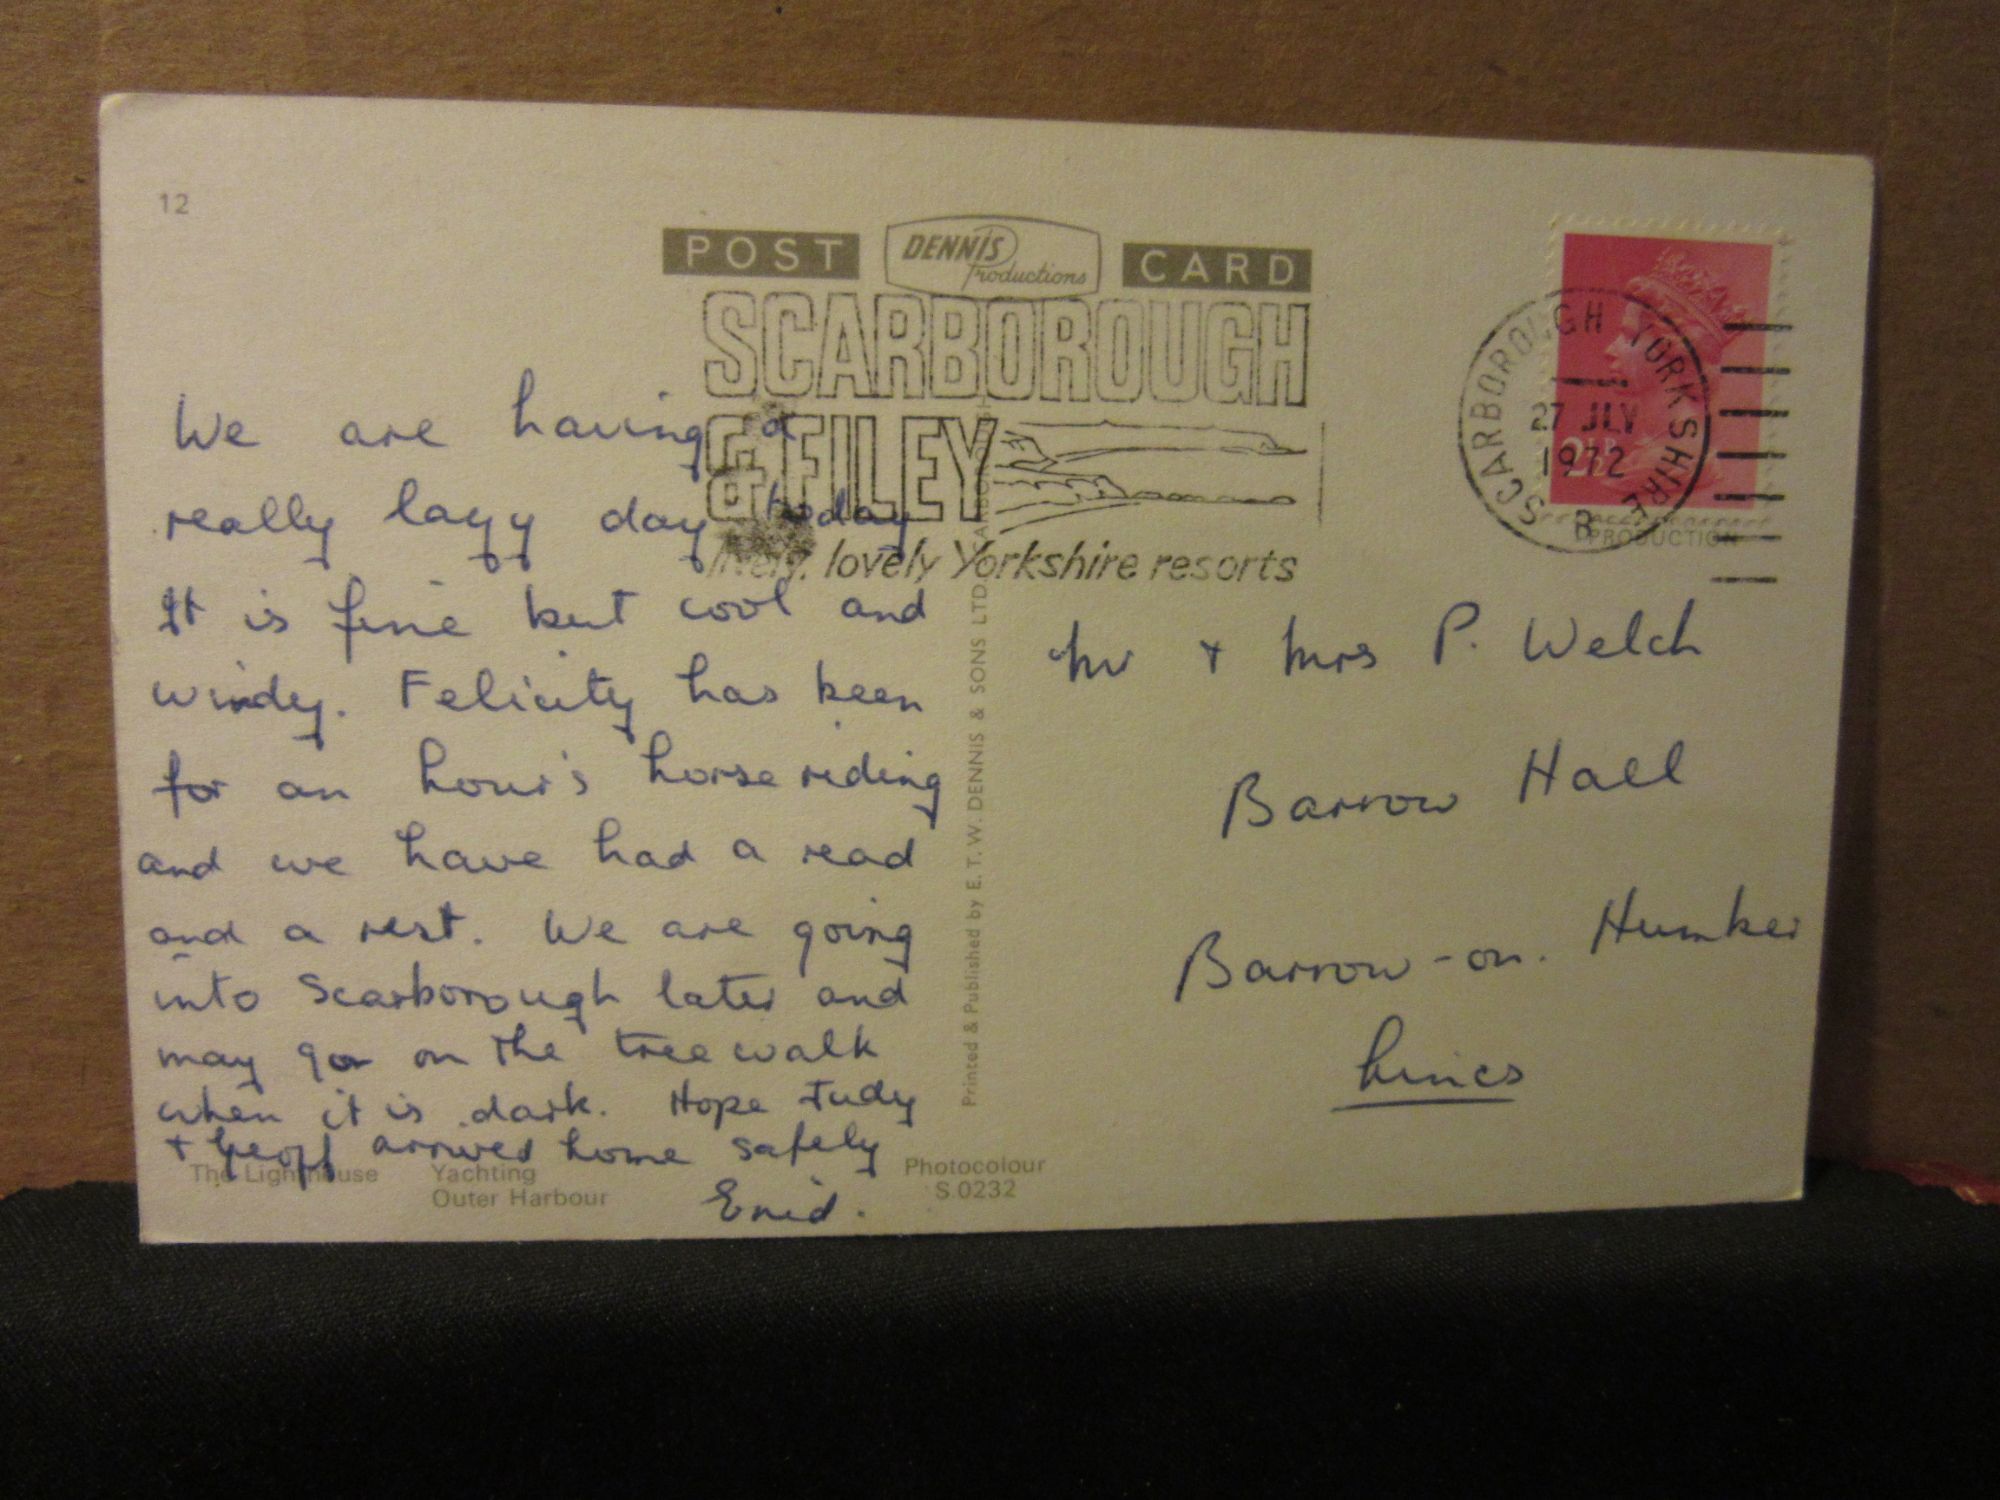 12
POST DENNIS Productions CARD
SCARBOROUGH
& FILEY
lively, lovely Yorkshire resorts
SCARBOROUGH YORKSHIRE
27 JLY
1972
B
2½P
PRODUCTION
We are having a
really lazy day today
It is fine but cool and
windy. Felicity has been
for an hour's horse riding
and we have had a read
and a rest. We are going
into Scarborough later and
may go on the tree walk
when it is dark. Hope Judy
+ Geoff arrived home safely
Enid.
Printed & Published by E. T. W. DENNIS & SONS LTD., SCARBOROUGH
Mr + Mrs P. Welch
Barrow Hall
Barrow-on. Humber
Lincs
The Lighthouse Yachting
Outer Harbour
Photocolour
S.0232